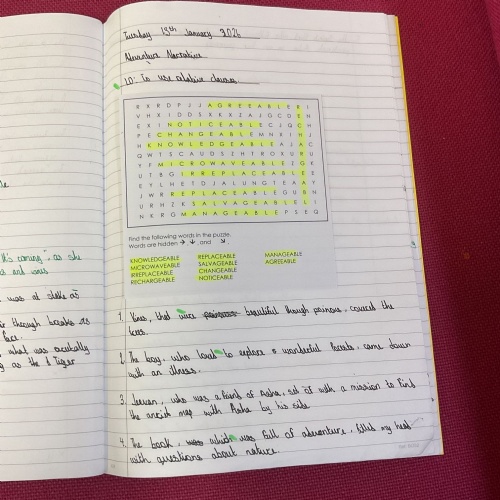 Tuesday 13th January 2026
Adventure Narrative
LO: To use relative clauses
R X R D P J J A G R E E A B L E R I
E X I N O T I C E A B L E C J Q C H
P E C H A N G E A B L E M N X I H J
H K N O W L E D G E A B L E A J A C
Q W T S C A U D S Z H T R O X U R U
Y F M I C R O W A V E A B L E I G K
U T B G I R R E P L A C E A B L E E
E Y L H E T D J A L U N G T E A A Y
J W R R E P L A C E A B L E G U B N
U R H Z K S A L V A G E A B L E L I
N K R G M A N A G E A B L E P S E Q
Find the following words in the puzzle.
Words are hidden → ↓ and ↘ .
KNOWLEDGEABLE REPLACEABLE MANAGEABLE
MICROWAVEABLE SALVAGEABLE AGREEABLE
IRREPLACEABLE CHANGEABLE
RECHARGEABLE NOTICEABLE
1. Vines, that were beautiful though poisonous, covered the
trees.
2. The boy, who loved to explore wonderful forests, came down
with an illness.
3. , who was a friend of Asha, set off with a mission to find
the map with Asha by his side
4. The book, which was full of adventure, filled my head
with questions about nature.
it's coming" as she
was
was as
through breaks as
face.
what was
as the Tiger